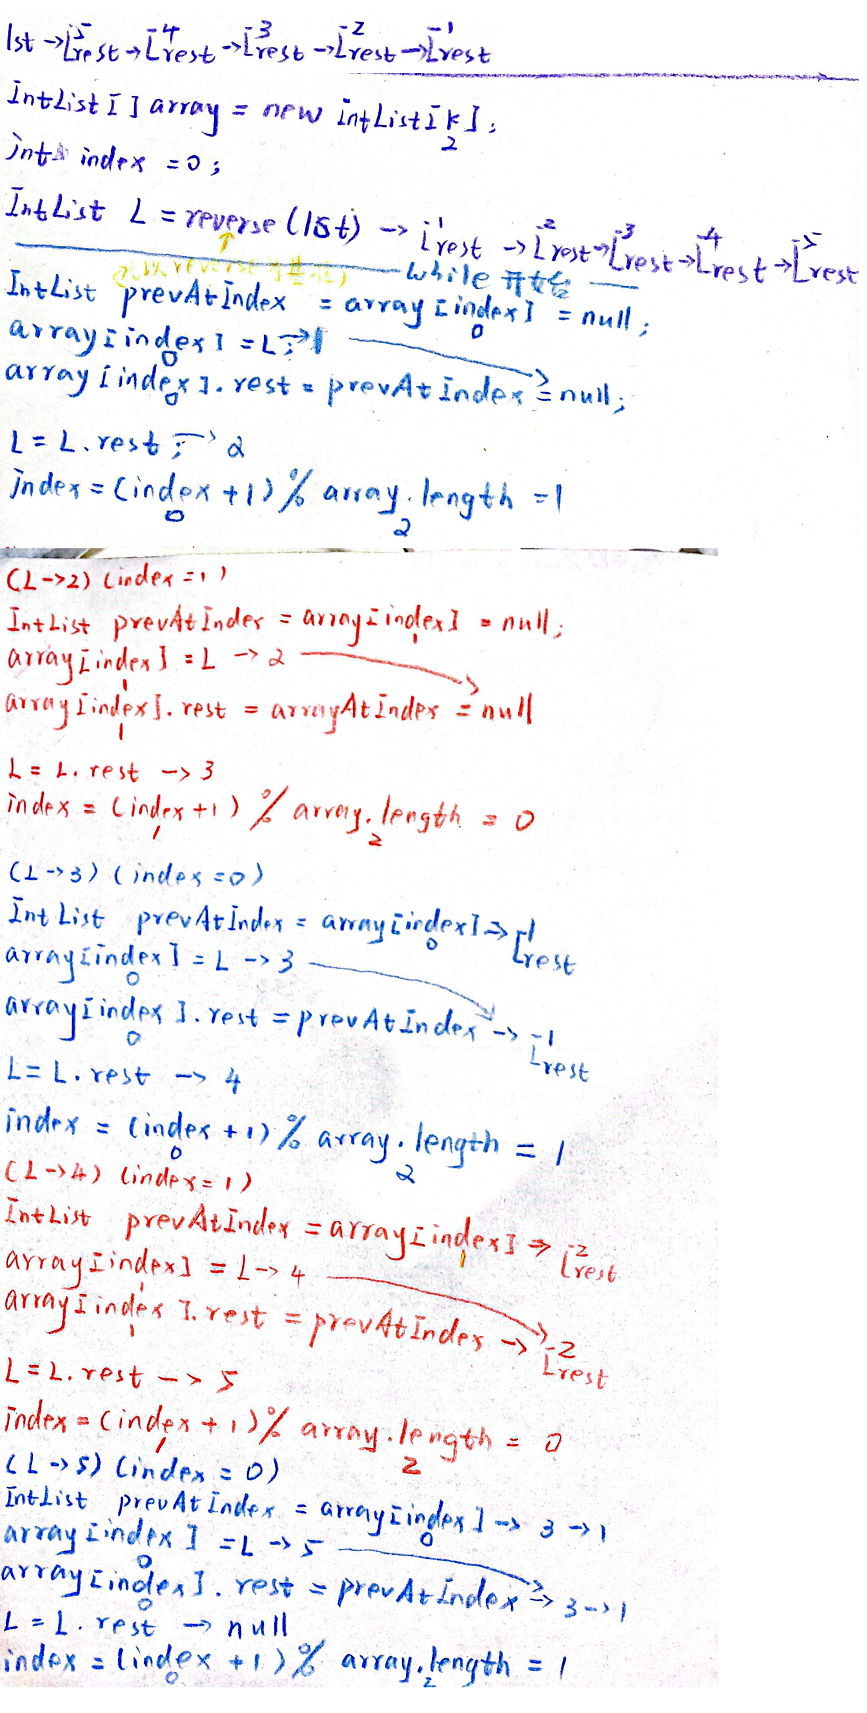 lst → 5 rest → 4 rest → 3 rest → 2 rest → 1 rest
IntList [ ] array = new IntList [k];
2
int index = 0;
IntList L = reverse (lst) → 1 rest → 2 rest → 3 rest → 4 rest → 5 rest
while 开始
IntList prevAtIndex = array [index] = null;
0
array [index] = L; → 1
0
array [index]. rest = prevAtIndex = null;
0
L = L. rest; → 2
index = (index + 1) % array. length = 1
0 2
(L → 2) (index = 1)
IntList prevAtIndex = array [index] = null;
1
array [index] = L → 2
1
array [index]. rest = arrayAtIndex = null
1
L = L. rest → 3
index = (index + 1) % array. length = 0
1 2
(L → 3) (index = 0)
IntList prevAtIndex = array [index] ⇒ 1 rest
0
array [index] = L → 3
0
array [index]. rest = prevAtIndex → 1 rest
0
L = L. rest → 4
index = (index + 1) % array. length = 1
0 2
(L → 4) (index = 1)
IntList prevAtIndex = array [index] ⇒ 2 rest
1
array [index] = L → 4
1
array [index]. rest = prevAtIndex → 2 rest
1
L = L. rest → 5
index = (index + 1) % array. length = 0
1 2
(L → 5) (index = 0)
IntList prevAtIndex = array [index] → 3 → 1
0
array [index] = L → 5
0
array [index]. rest = prevAtIndex ⇒ 3 → 1
0
L = L. rest → null
index = (index + 1) % array. length = 1
0 2